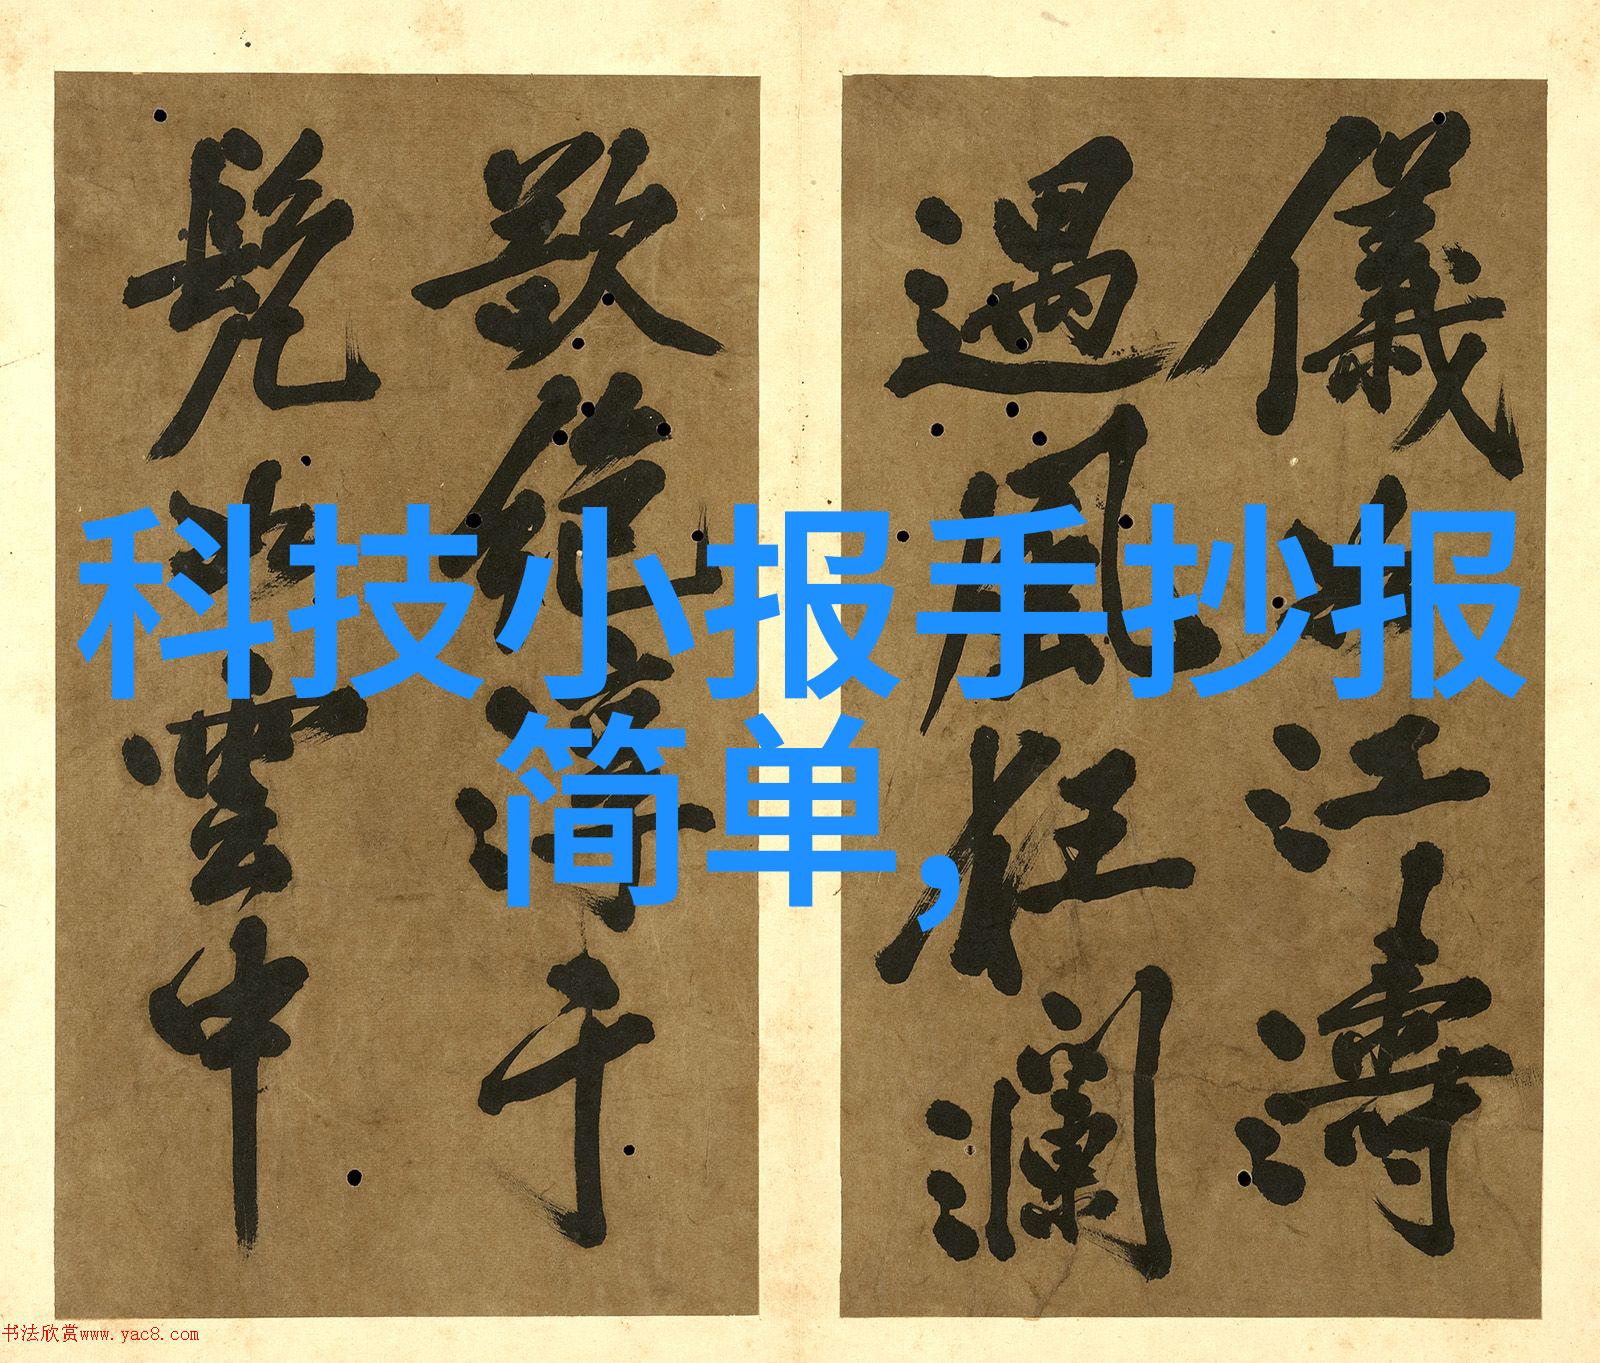 科技小报手抄报
简单,
儀如江濤
遇風狂瀾
絕淳于
髡如雲中
书法欣赏www.yac8.com